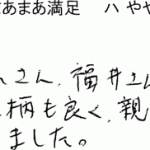 まあまあ満足 ハ やや
さん、福井さん
柄も良く、親
ました。